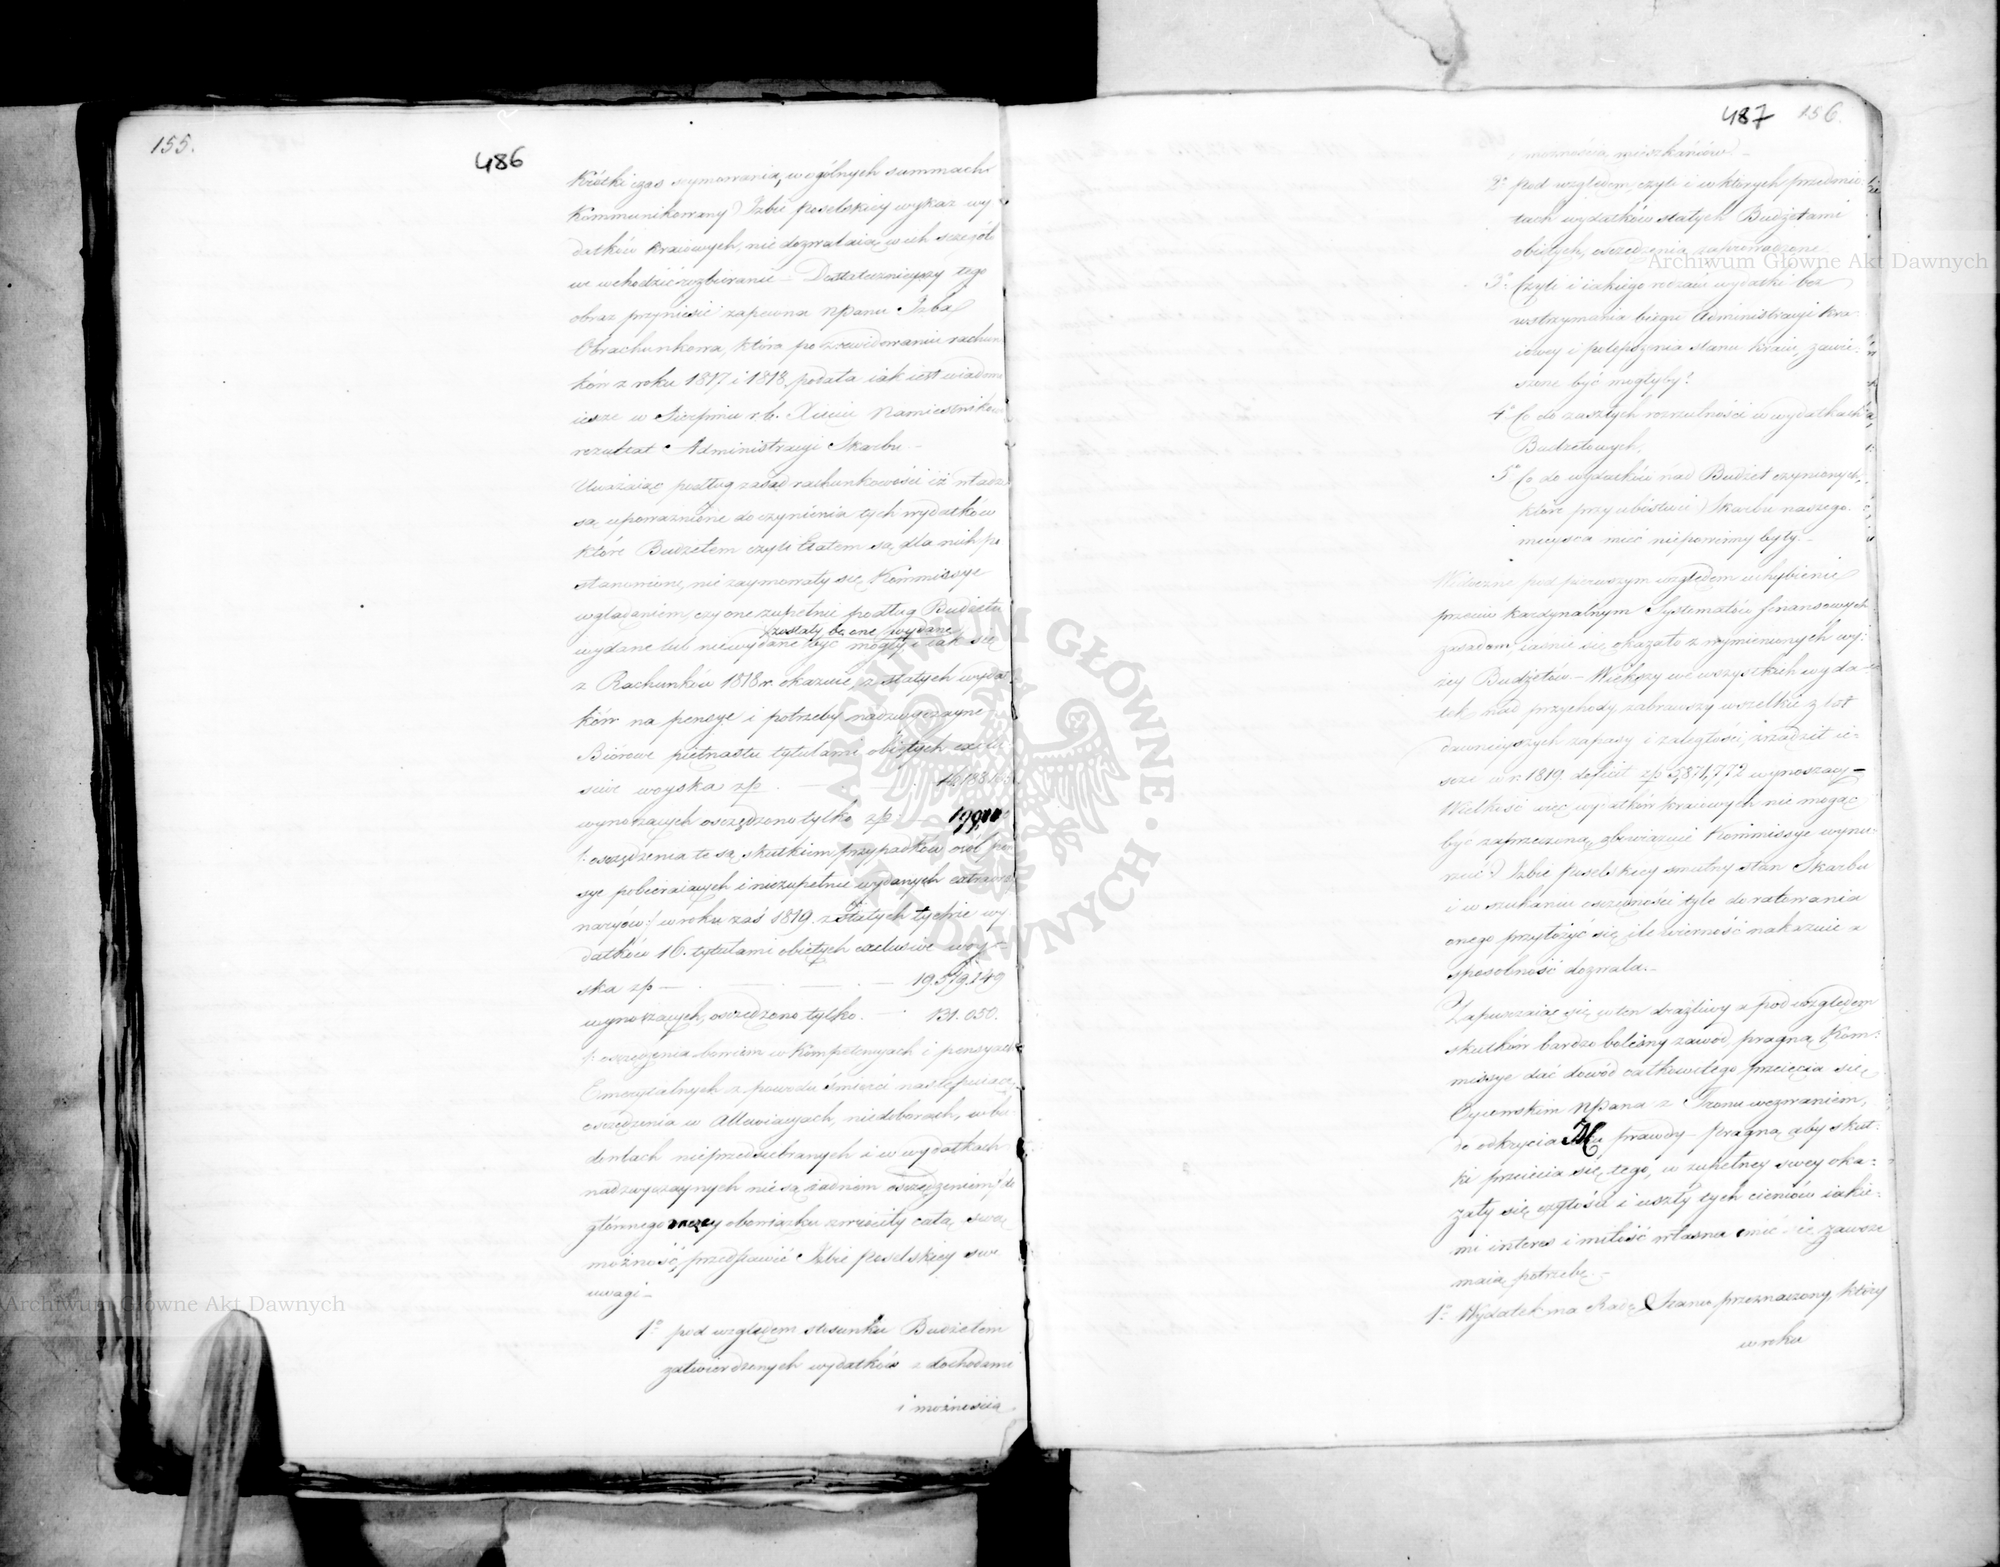 155.
486
Krótki czas seymowania, w ogólnych summach
Kommunikowany Izbie Poselskiey wykaz wy
datków kraiowych, nie dozwalaią w ich szczegóło
we wchodzić rozbieranie – Dostatecznieyszy tego
obraz przyniesie zapewne NPanu Izba
Obrachunkowa, która po zrewidowaniu rachun
ków z roku 1817 i 1818 podała iak iest wiadomo
ieszcze w Sierpniu r.b. Xięciu Namiestnikowi
rezultat Administracyi Skarbu –
Uważaiąc podług zasad rachunkowości iż władze
są upoważnione do czynienia tych wydatków
które Budżetem czyli Etatem są dla nich po
stanowione, nie zaymowały się Kommissye
wglądaniem, czy one zupełnie podług Budżetu
zostały bo one wydane
wydane lub niewydane być mogły, i iak się
z Rachunków 1818 r. okazuie, z stałych wydat
ków na pensye i potrzeby nadzwyczayne
Biórowe piętnastu tytułami obiętych exclu
sive woyska zp — — —
wynoszących oszczędzono tylko zp. —
oszczędzenia te są skutkiem przypadków osób pen
sye pobieraiących i niezupełnie wydanych extraordy
naryów / w roku zaś 1819. z stałych tychże wy
datków 16. tytułami obiętych exclusive woy-
ska zp — — — — 19.519.149
wynoszących, oszczędzono tylko. — 131.050.
oszczędzenia bowiem w Kompetencyach i pensyach
Emerytalnych z powodu śmierci następuiące,
oszczędzenia w Allewiacyach, niedoborach, w bu
dowlach nieprzedsiębranych i w wydatkach
nadzwyczaynych nie są żadnem oszczędzeniem / do
głównego obowiązku zwróciły całą swą
możność, przedstawić Izbie Poselskiey swe
uwagi –
1° pod względem stosunku Budżetem
zatwierdzonych wydatków z dochodami
i możnością
487 156.
i możnością mieszkańców –
2° Pod względem, czyli i w których przedmio
tach wydatków stałych Budżetami
obiętych, oszczędzenia zaprowadzone
3° Czyli i iakiego rodzaiu wydatki bez
wstrzymania biegu Administracyi kra-
iowey i polepszenia stanu kraiu, zawie-
szone być mogłyby?
4° Co do zaszłych rozrzutności w wydatkach
Budżetowych,
5° Co do wydatków nad Budżet czynionych,
które przy ubóstwie Skarbu naszego
mieysca mieć niepowinny były. –
Widoczne pod pierwszym względem uchybienie
przeciw kardynalnym Systematów finansowych
zasadom iaśnie się okazało z wymienionych wy:
żey Budżetów. – Większy we wszystkich wyda-
tek nad przychody, zabrawszy wszelkie z lat
dawnieyszych zapasy i zaległości, zrządził ie-
szcze w r. 1819. deficit zp 5,871,772 wynoszący –
Wielkość więc wydatków kraiowych nie mogąc
być zaprzeczoną, obowiązuie Kommissye wynu-
rzać Izbie Poselskiey smutny stan Skarbu
i w szukaniu oszczędności tyle do ratowania
onego przyłożyć się, ile wierność nakazuie a
sposobność dozwala. –
Zapuszczaiąc się w ten drażliwy a pod względem
skutków bardzo bolesny zawód, pragną Kom-
missye dać dowód całkowitego przeięcia się
Oycowskim NPana z Tronu wezwaniem,
do odkrycia Mu prawdy – Pragną, aby skut-
ki przeięcia się tego, w zupełney swey oka-
zały się czystości i uszły tych cieniów iakie-
mi interes i miłość własna ćmić ie zawsze
maią potrzebę. –
1° Wydatek na Radę Stanu przeznaczony, który
w roku
Archiwum Główne Akt Dawnych
Archiwum Główne Akt Dawnych
ARCHIWUM GŁÓWNE AKT DAWNYCH